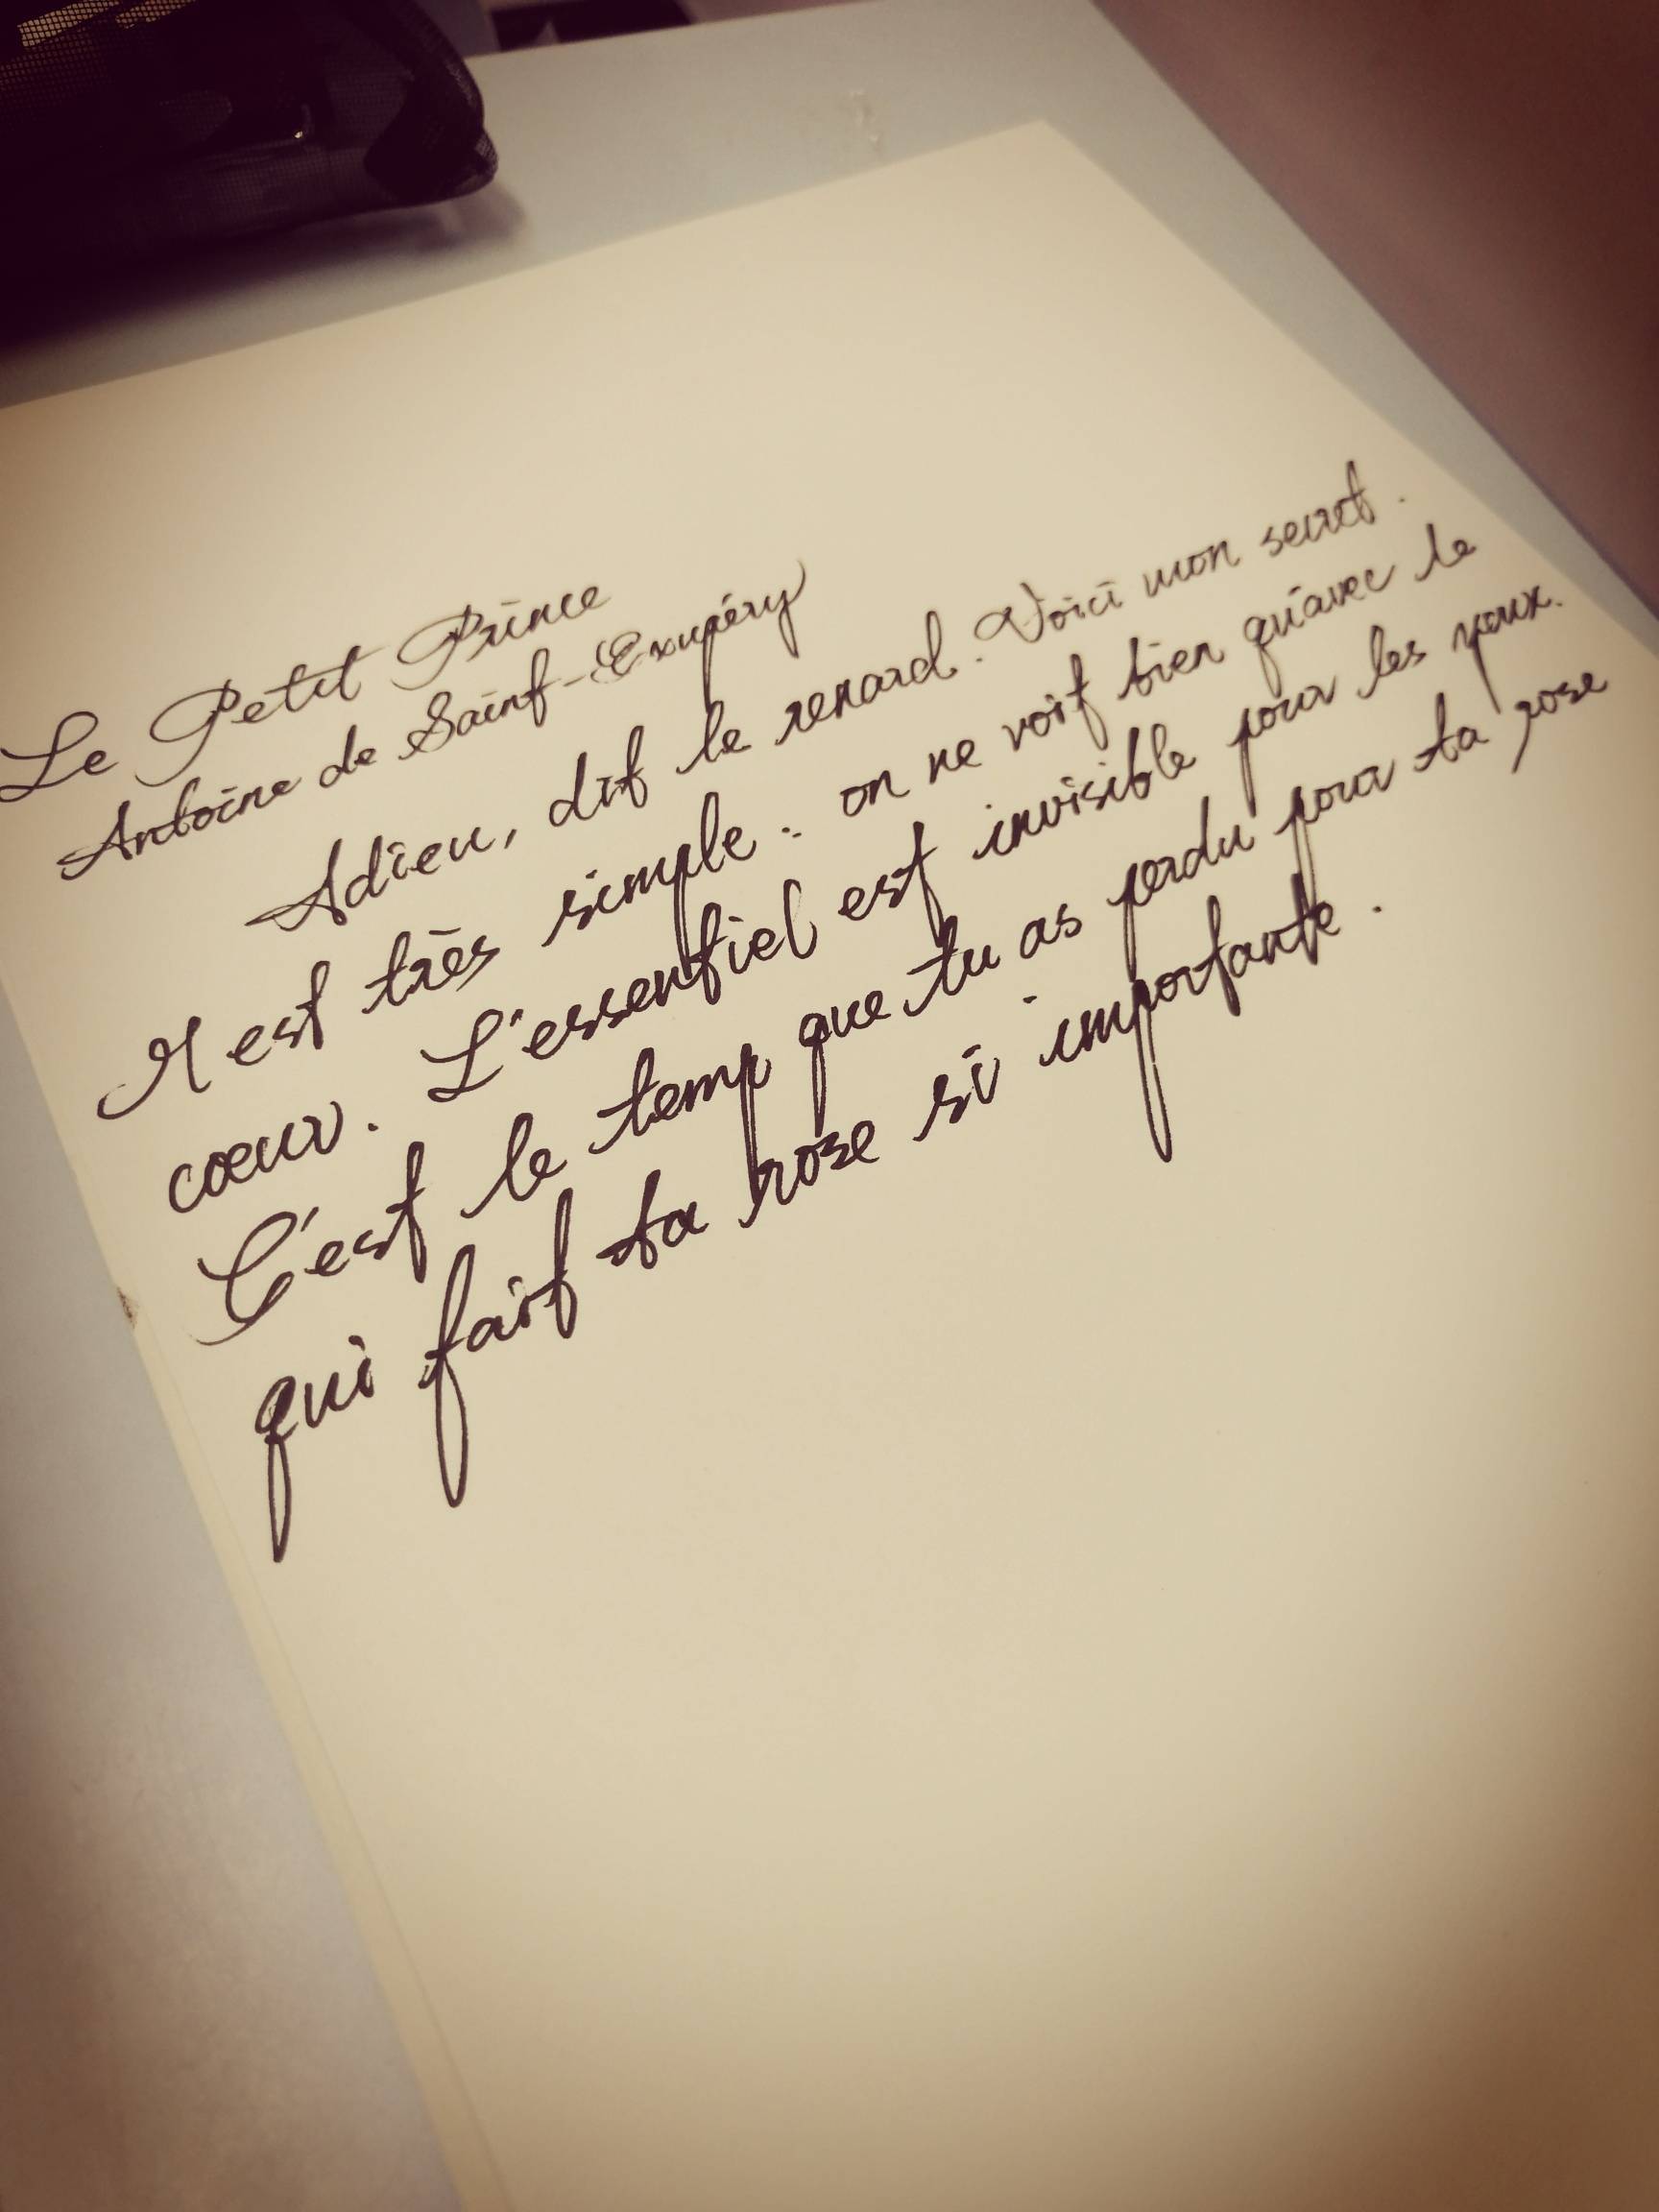 Le Petit Prince
Antoine de Saint-Exupéry
Adieu, dit le renard. Voici mon secret.
Il est très simple : on ne voit bien qu'avec le
cœur. L'essentiel est invisible pour les yeux.
C'est le temp que tu as perdu pour ta rose
qui fait ta rose si importante.